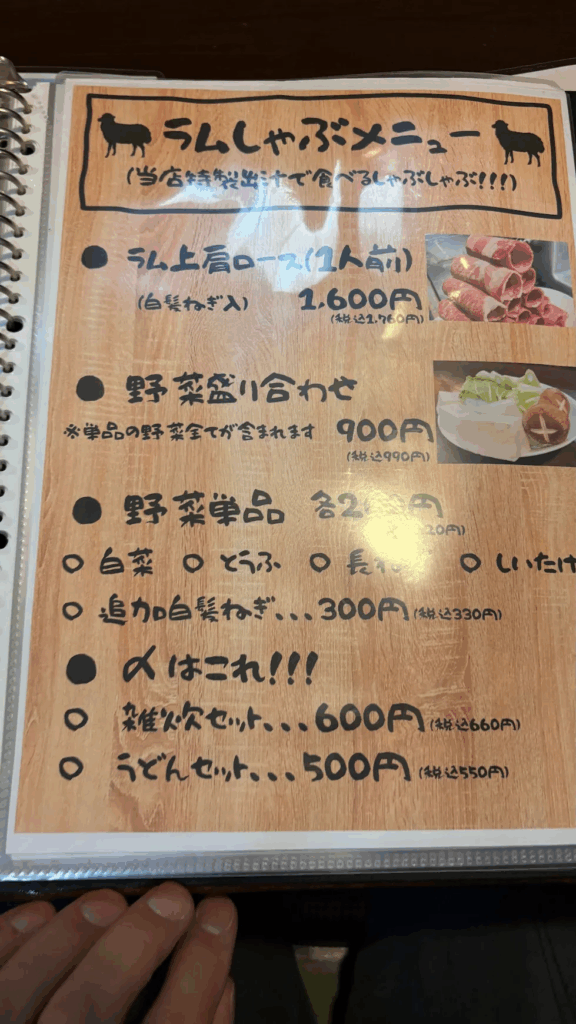 ラムしゃぶメニュー
(当店特製出汁で食べるしゃぶしゃぶ!!!)
● ラム上肩ロース(1人前)
(白髪ねぎ入) 1,600円
(税込1,760円)
● 野菜盛り合わせ
※単品の野菜全てが含まれます 900円
(税込990円)
● 野菜単品 各2 円
20円)
○ 白菜 ○ とうふ ○ 長ね ○ しいたけ
○ 追加白髪ねぎ...300円(税込330円)
● 〆はこれ!!!
○ 雑炊セット...600円(税込660円)
○ うどんセット...500円(税込550円)